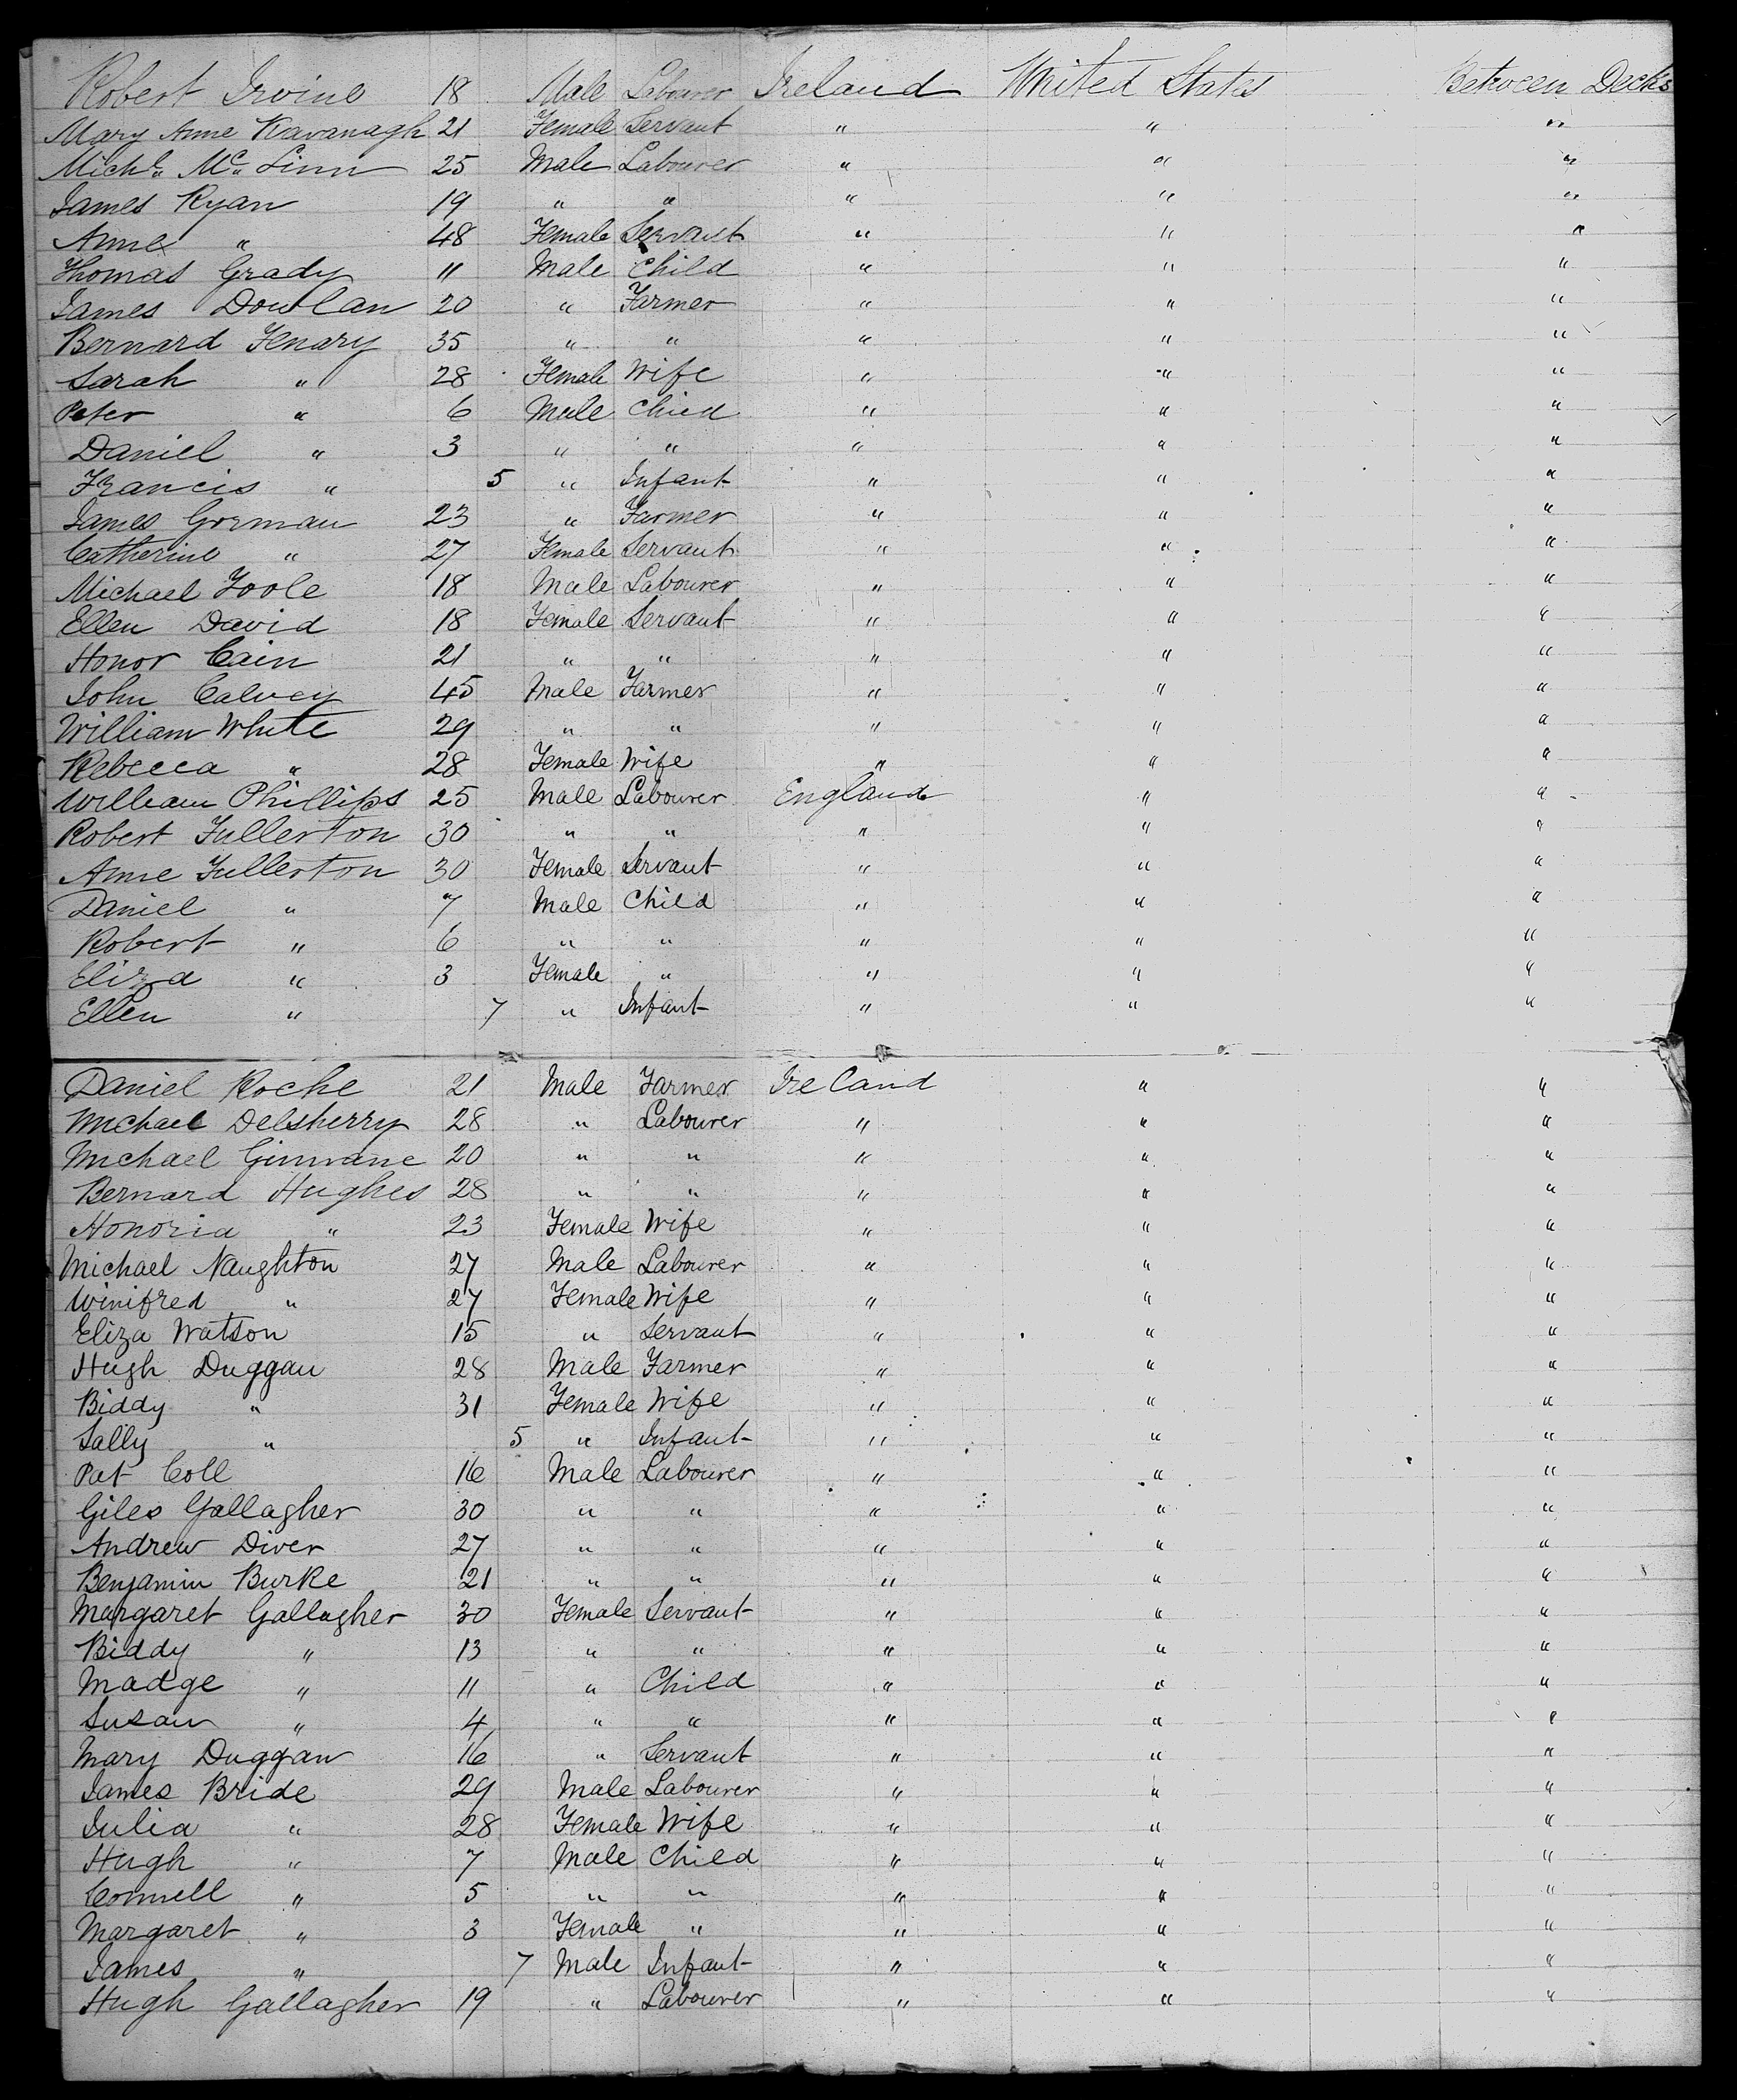 Robert Irvine 18 Male Labourer Ireland United States Between Decks
Mary Anne Kavanagh 21 Female Servant " " "
Michl. Mc. Linn 25 Male Labourer " " "
James Ryan 19 " " " " "
Anne " 48 Female Servant " " "
Thomas Grady 11 Male Child " " "
James Dowlan 20 " Farmer " " "
Bernard Fenary 35 " " " " "
Sarah " 28 Female Wife " " "
Peter " 6 Male Child " " "
Daniel " 3 " " " " "
Francis " 5 " Infant " " "
James Gorman 23 " Farmer " " "
Catherine " 27 Female Servant " " "
Michael Toole 18 Male Labourer " " "
Ellen David 18 Female Servant " " "
Honor Cain 21 " " " " "
John Calvey 45 Male Farmer " " "
William White 29 " " " " "
Rebecca " 28 Female Wife " " "
William Phillips 25 Male Labourer England " "
Robert Fullerton 30 " " " " "
Anne Fullerton 30 Female Servant " " "
Daniel " 7 Male Child " " "
Robert " 6 " " " " "
Eliza " 3 Female " " " "
Ellen " 7 " Infant " " "
Daniel Roche 21 Male Farmer Ireland " "
Michael Delsherry 28 " Labourer " " "
Michael 20 " " " " "
Bernard Hughes 28 " " " " "
Honoria " 23 Female Wife " " "
Michael Naughton 27 Male Labourer " " "
Winifred " 27 Female Wife " " "
Eliza Watson 15 " Servant " " "
Hugh Duggan 28 Male Farmer " " "
Biddy " 31 Female Wife " " "
Sally " 5 " Infant " " "
Pat Coll 16 Male Labourer " " "
Giles Gallagher 30 " " " " "
Andrew Diver 27 " " " " "
Benjamin Burke 21 " " " " "
Margaret Gallagher 30 Female Servant " " "
Biddy " 13 " " " " "
Madge " 11 " Child " " "
Susan " 4 " " " " "
Mary Duggan 16 " Servant " " "
James Bride 29 Male Labourer " " "
Julia " 28 Female Wife " " "
Hugh " 7 Male Child " " "
Connell " 5 " " " " "
Margaret " 3 Female " " " "
James " 7 Male Infant " " "
Hugh Gallagher 19 " Labourer " " "